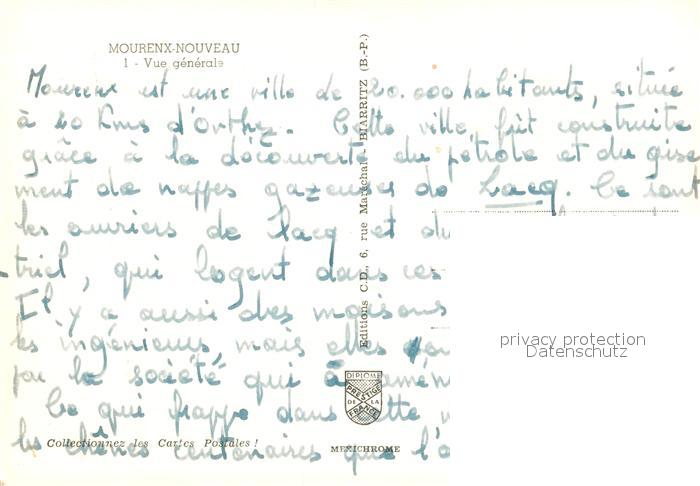 MOURENX-NOUVEAU
1 - Vue générale
Mourenx est une ville de 20.000 habitants, située
à 20 Kms d'Orthez. Cette ville, fût construite
grâce à la découverte du pétrole et du gise
ment de nappes gazeuses de Lacq. Ce sont
les ouvriers de Lacq et du
triel, qui logent dans ces
Il y a aussi des maisons
les ingénieurs, mais elles
par la société qui a
Ce qui frappe dans cette
les chênes centenaires que l'o
Editions C.D., 6, rue Maréchal - BIARRITZ (B.-P.)
privacy protection
Datenschutz
DIPLOME
PRESTIGE
DE LA
FRANCE
Collectionnez les Cartes Postales !
MEXICHROME